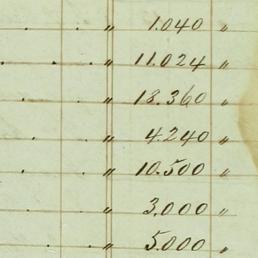 " 1.040 "
" 11.024 "
" 18.360 "
" 4.240 "
" 10.500 "
" 3.000 "
" 5.000 "